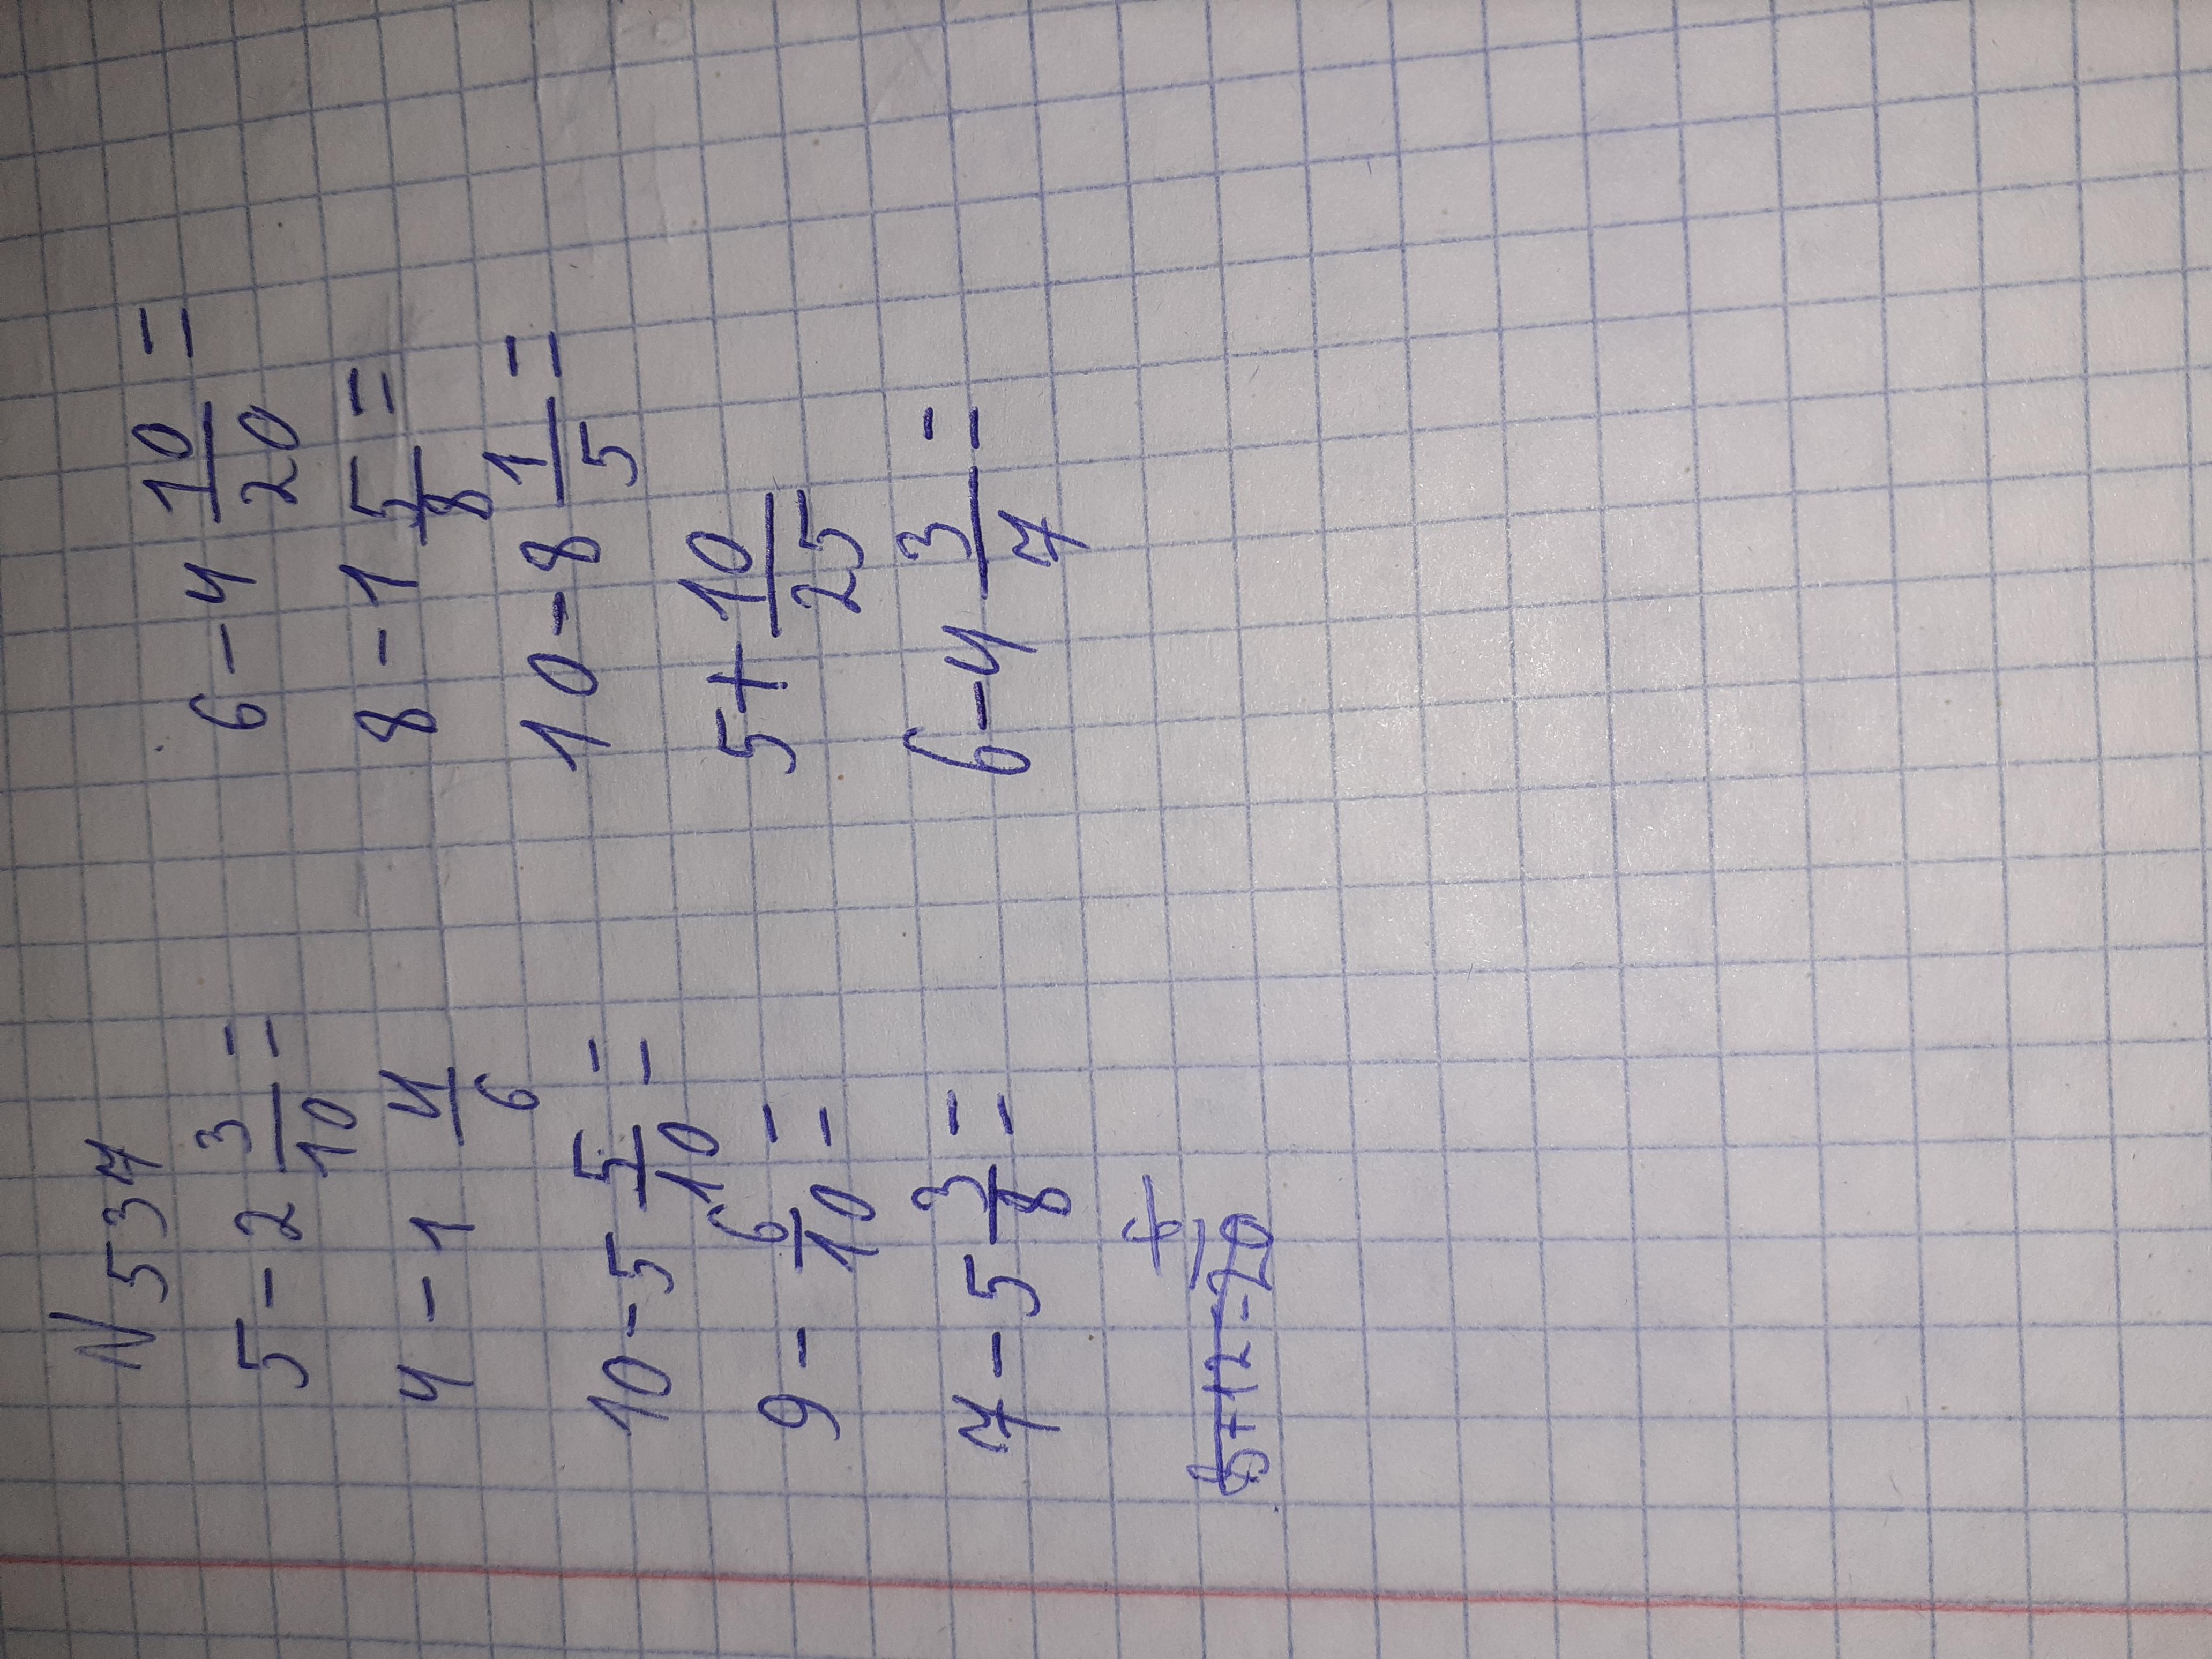 N 537
5 - 2 3/10 =
4 - 1 4/6
10 - 5 5/10 =
9 - 6/10 =
7 - 5 3/8 =
6 - 4 10/20 =
8 - 1 5/8 =
10 - 8 1/5 =
5 + 10/25
6 - 4 3/7 =